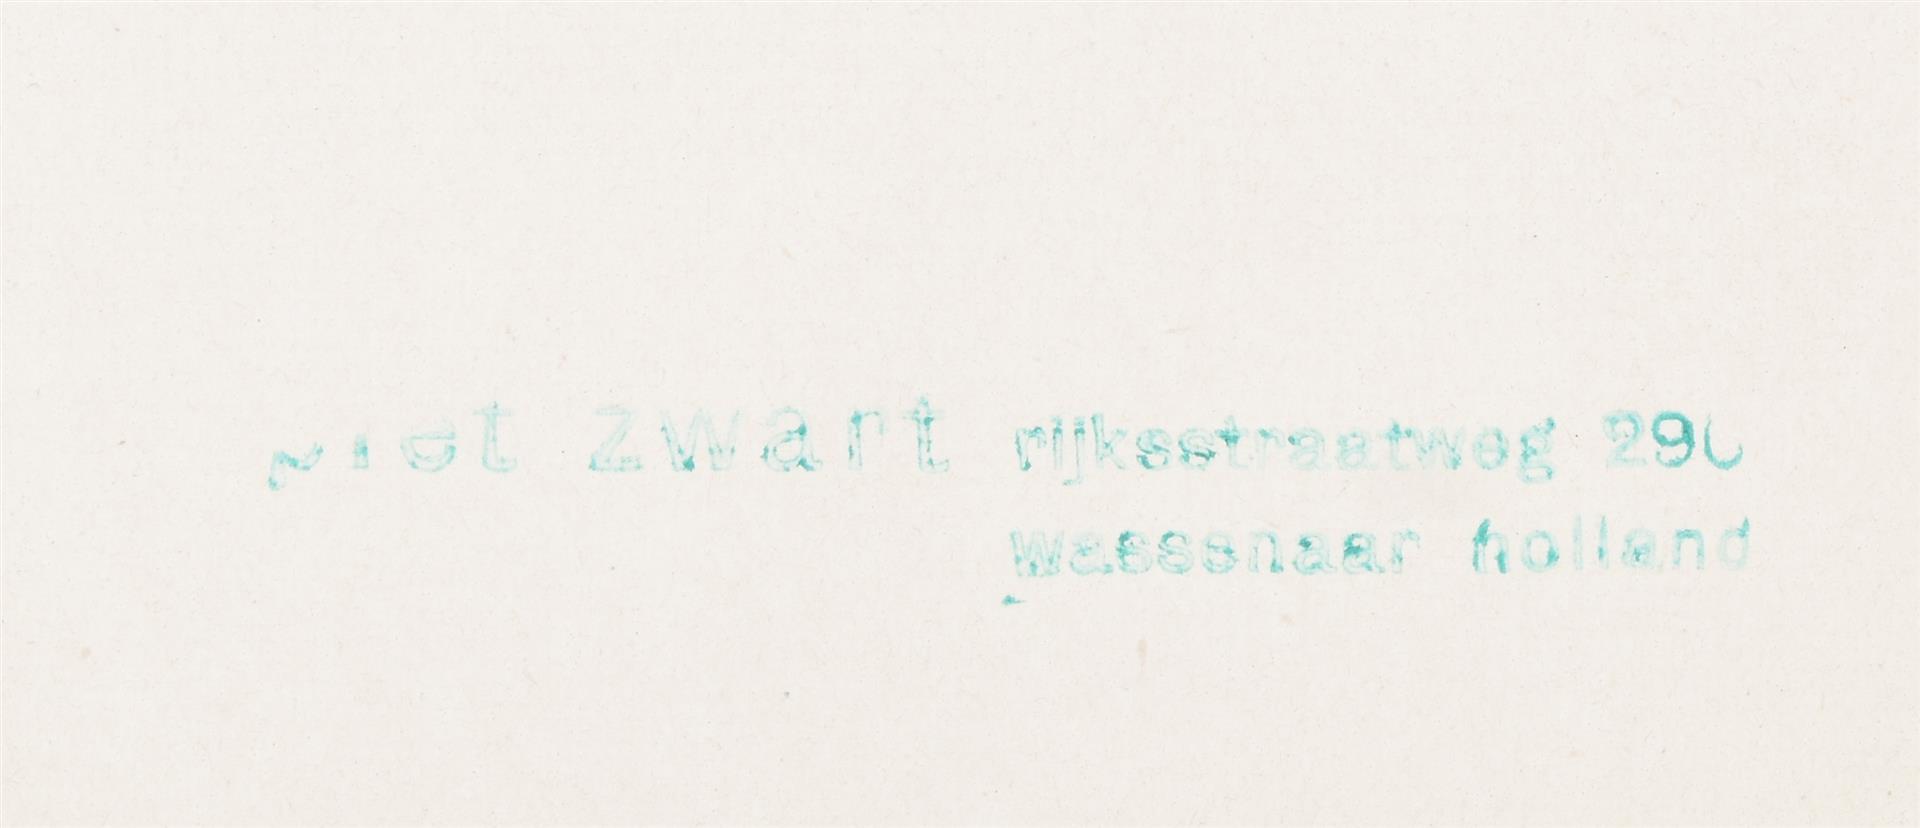 piet zwart rijksstraatweg 290
wassenaar holland